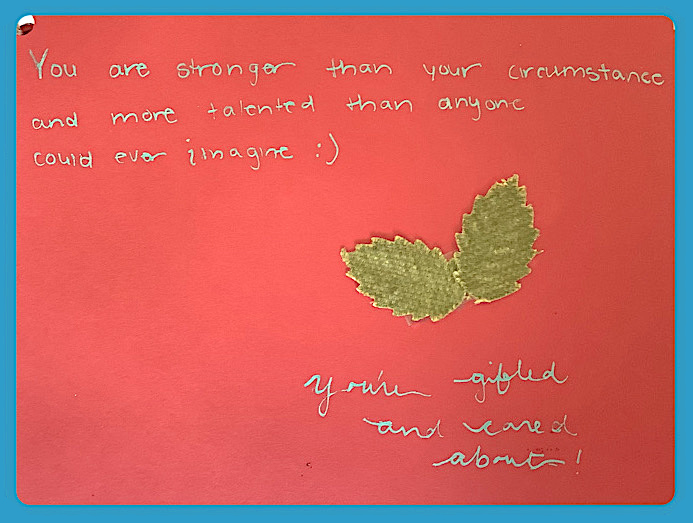 You are stronger than your circumstance
and more talented than anyone
could ever imagine :)
You're gifted
and cared
about!